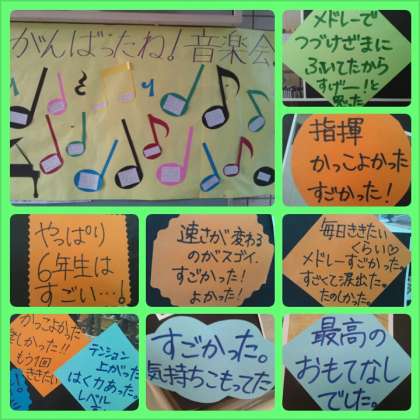 がんばったね！音楽会
メドレーで
つづけざまに
ふいてたから
すげー！と
思った
指揮
かっこよかった
すごかった！
やっぱり
6年生は
すごい…！
速さが変わる
のがスゴイ。
すごかった！
よかった！
毎日ききたい
くらい♡
メドレーすごかった。
すごくて涙出た。
たのしかった。
かっこよかった
楽しかった!!
もう1回
ききたい
テンション
上がった
はく力あった。
レベル
すごかった。
気持ちこもってた
最高の
おもてなし
でした。